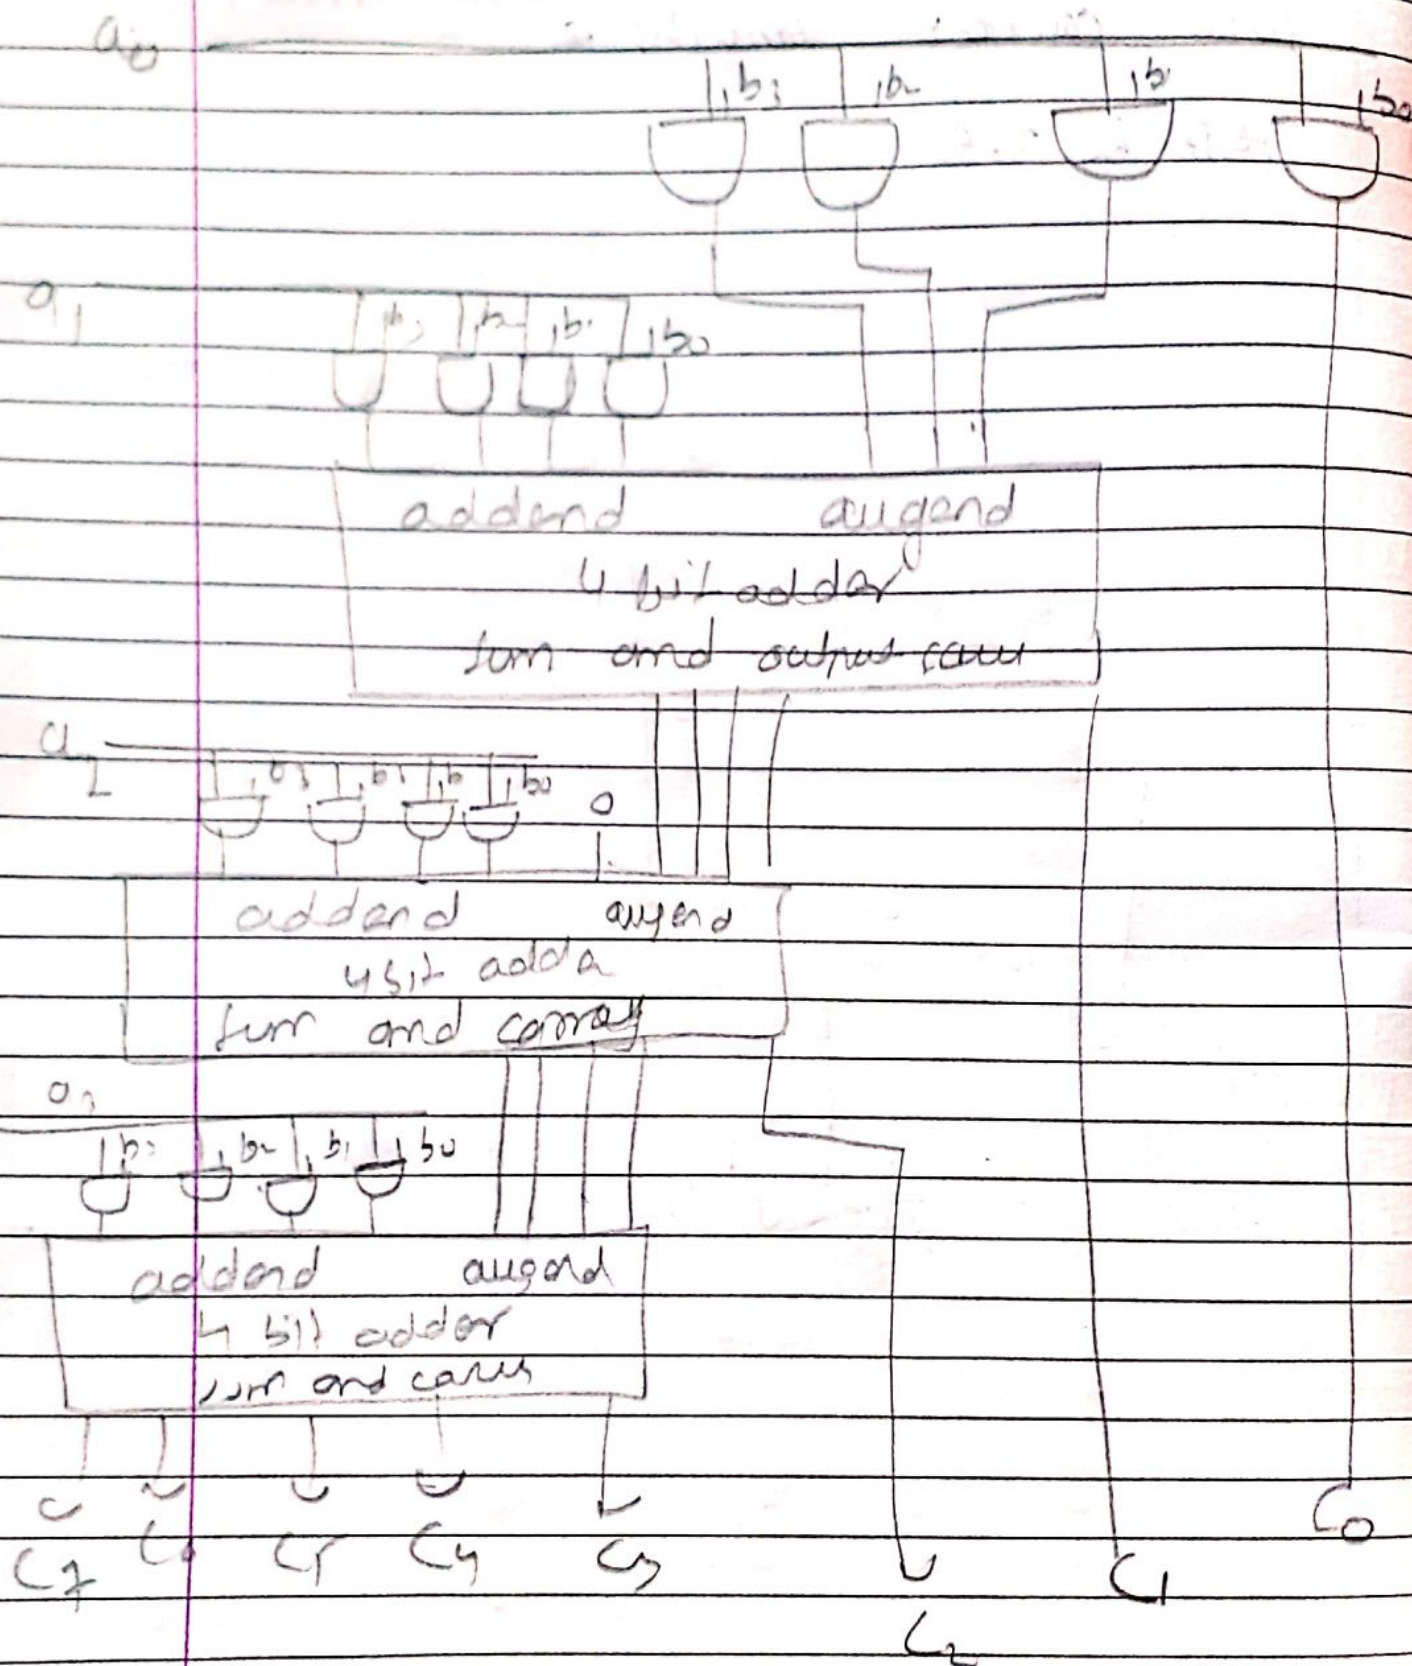 a0
b3 b2 b1 b0
a1
b3 b2 b1 b0
addend augend
4 bit adder
sum and output carry
a2
b1 b0 0
addend augend
4 bit adder
sum and carry
a3
b3 b2 b1 b0
addend augend
4 bit adder
sum and carry
C7 C6 C5 C4 C3 C2 C1 C0